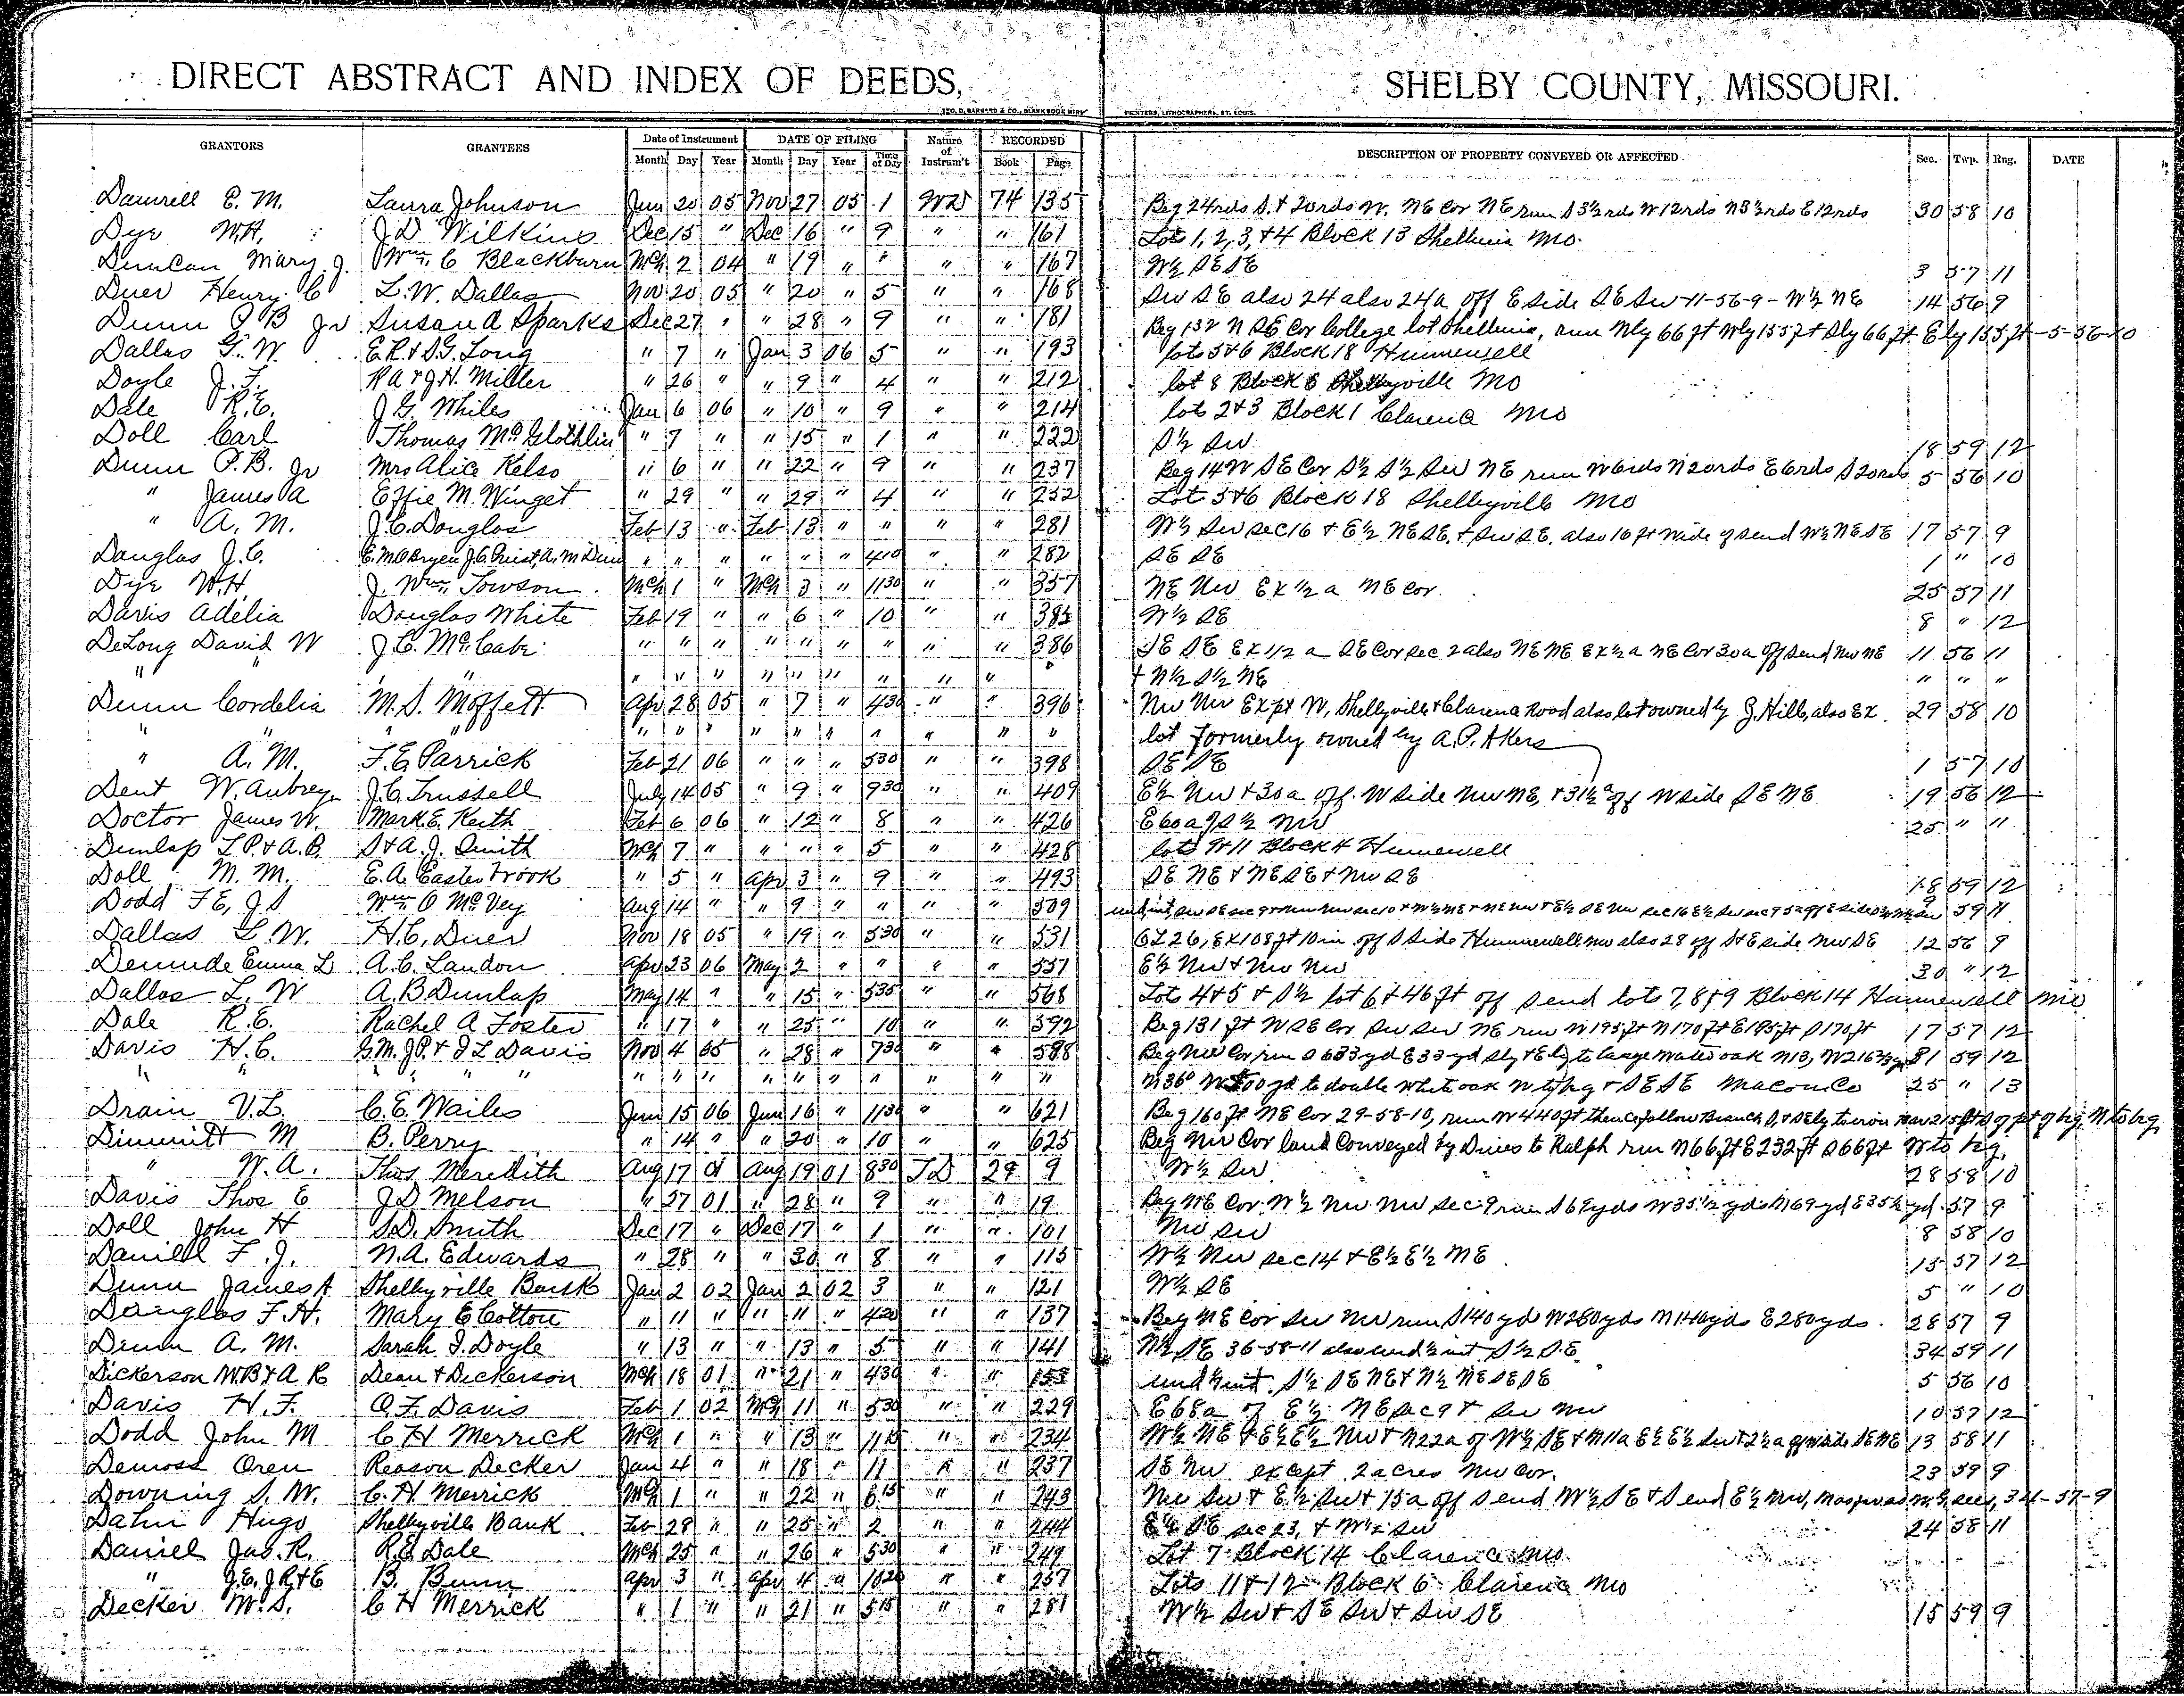 DIRECT ABSTRACT AND INDEX OF DEEDS, SHELBY COUNTY, MISSOURI.
GEO. D. BARNARD & CO., BLANK BOOK MFRS PRINTERS, LITHOGRAPHERS, ST. LOUIS.
GRANTORS GRANTEES Date of Instrument DATE OF FILING Nature of Instrum't RECORDED DESCRIPTION OF PROPERTY CONVEYED OR AFFECTED Sec. Twp. Rng. DATE
Month Day Year Month Day Year Time of Day Book Page
E. M. Laura Johnson Jun 20 05 Nov 27 05 1 WD 74 135 Beg 24rds S. & 20rds W. NE Cor NE run S 3½rds W 12rds N 3½rds E 12rds 30 58 10
Dye W.H. J.D. Wilkins Dec 15 " Dec 16 " 9 " " 161 Lots 1, 2, 3, & 4 Block 13 Shelbina Mo.
Duncan Mary J. Wm. C Blackburn Mch 2 04 " 19 " " " " 167 W½ SE SE 3 57 11
Duer Henry C L. W. Dallas Nov 20 05 " 20 " 5 " " 168 SW SE also 24 also 24a off E side SE SW-11-56-9- W½ NE 14 56 9
Dunn P B Jr Susan A Sparks Dec 27 " " 28 " 9 " " 181 Beg 132 N SE Cor College lot Shelbina, run Nly 66 ft Wly 155 ft Sly 66 ft Ely 155 ft -5-56-10
Dallas G. W. E.R. & S.G. Long " 7 " Jan 3 06 5 " " 193 lots 5&6 Block 18 Hunnewell
Doyle J. F. R A & J.H. Miller " 26 " " 9 " 4 " " 212 lot 8 Block 8 Shelbyville Mo
Dale R.E. J G. Whiles Jan 6 06 " 10 " 9 " " 214 lots 2&3 Block 1 Clarence Mo
Doll Carl Thomas McGlothlin " 7 " " 15 " 1 " " 222 S½ SW 18 59 12
Dunn P. B. Jr Mrs Alice Kelso " 6 " " 22 " 9 " " 237 Beg 14 W SE Cor S½ S½ SW NE run W 6rds N 20rds E 6rds S 20rds 5 56 10
" James A Effie M. Winget " 29 " " 29 " 4 " " 252 Lot 5&6 Block 18 Shelbyville Mo
" A. M. J.C. Douglas Feb 13 " Feb 13 " " " " 281 W½ SW sec 16 & E½ NE SE, & SW SE, also 16 ft wide of send W½ NE SE 17 57 9
Douglas J.C. E.M. OBryen J.C. Priest, A. M Dunn " " " " " " 410 " " 282 SE SE 1 " 10
Dye W.H. J. Wm. Towson Mch 1 " Mch 3 " 1130 " " 357 NE NW Ex ½ a NE Cor. 25 57 11
Davis Adelia Douglas White Feb 19 " " 6 " 10 " " 385 W½ SE 8 " 12
DeLong David W J. C. McCabe " " " " " " " " " 386 SE SE Ex 1/2 a SE Cor sec 2 also NE NE Ex ½ a NE Cor 30a off send NW NE 11 56 11
" " " " " " " " " " " " & N½ S½ NE " " "
Dunn Cordelia M. S. Moffett Apr 28 05 " 7 " 430 " " 396 NW NW Ex pt W, Shelbyville & Clarence Road also lot owned by J. Hill, also Ex. 29 58 10
" " " " " " " " " " " " " lot formerly owned by A. P. Akers
" A. M. F. E. Parrick Feb 21 06 " " " 530 " " 398 SE SE 1 57 10
Dent W. Aubrey J. C. Trussell July 14 05 " 9 " 930 " " 409 E½ NW & 30a off W side NW NE, & 31½a off W side SE NE 19 56 12
Doctor James W. Mark E. Keith Feb 6 06 " 12 " 8 " " 426 E 60 a of S½ NW 25 " "
Dunlap L P. & A. B. S & A. J. Smith Mch 7 " " " " 5 " " 428 lots Block 4 Hunnewell
Doll M. M. E. A. Easterbrook " 5 " Apr 3 " 9 " " 493 SE NE & NE SE & NW SE 18 59 12
Dodd F E, J. S Wm O McVey Aug 14 " " 9 " " " " 509 59 11
Dallas L. W. H. C. Duer Nov 18 05 " 19 " 530 " " 531 OL 26, Ex 108 ft 10 in off S side Hunnewell NW also 28 off S & E side NW SE 12 56 9
Emma L A. C. Landon Apr 23 06 May 2 " " " " 557 E½ NW & NW NW 30 " 12
Dallas L. W A. B Dunlap May 14 " " 15 " 535 " " 568 Lots 4&5 & S½ lot 6 & 46 ft off S end lots 7, 8 & 9 Block 14 Hunnewell Mo
Dale R. E. Rachel A Foster " 17 " " 25 " 10 " " 592 Beg 131 ft W SE Cor SW SW NE run W 195 ft N 170 ft E 195 ft S 170 ft 17 57 12
Davis H. C. G. M. J. P. & J L Davis Nov 4 05 " 28 " 730 " " 598 Beg NW Cor run S 633 yd E 33 yd Sly & Ely to large water oak N 13, W 216 31 59 12
" " " " " " " " " " " " " " N 36° W 500 yd to double white oak N to beg & SE SE Macon Co 25 " 13
Drain V. L. C. E. Wailes Jun 15 06 Jun 16 " 1130 " " 621 Beg 160 ft NE Cor 29-58-10, run W 440 ft thence follow Branch S & SEly to iron bar 215 ft S of pt of beg. N to beg
Dimmitt M B. Perry " 14 " " 20 " 10 " " 625 Beg NW Cor land conveyed by Dines to Ralph run N 66 ft E 232 ft S 66 ft W to beg.
" W. A. Thos Meredith Aug 17 01 Aug 19 01 830 TD 29 9 W½ SW 28 58 10
Davis Thos E J D Melson " 27 01 " 28 " 9 " " 19 Beg NE Cor W½ NW NW sec 9 run S 69 yds W 35½ yds N 69 yd E 35½ yd. 57 9
Doll John H S. D. Smith Dec 17 " Dec 17 " 1 " " 101 NW SW 8 58 10
Daniell F. J. N. A. Edwards " 28 " " 30 " 8 " " 115 W½ NW sec 14 & E½ E½ NE 15 57 12
Dunn James A Shelbyville Bank Jan 2 02 Jan 2 02 3 " " 121 W½ SE 5 " 10
Douglas F. H. Mary E Cotton " 11 " " 11 " 420 " " 137 Beg NE Cor SW NW run S 140 yd W 280 yds N 140 yds E 280 yds. 28 57 9
Dunn A. M. Sarah J. Doyle " 13 " " 13 " 5 " " 141 N½ SE 36-58-11 also und ½ int S½ SE 34 59 11
Dickerson W. B & A R Dean & Dickerson Mch 18 01 " 21 " 430 " " 153 und ½ int. S½ SE NE & N½ NE SE SE 5 56 10
Davis H. F. O. F. Davis Feb 1 02 Mch 11 " 530 " " 229 E 68a of E½ NE sec 9 & SW NW 10 57 12
Dodd John M C H Merrick Mch 1 " " 13 " 1115 " " 234 W½ NE & E½ E½ NW & N 22a of W½ SE & N 11a E½ E½ SW & 2½ a off W side SE NE 13 58 11
Demoss Oren Reason Decker Jan 4 " " 18 " 11 " " 237 SE NW except 2 acres NW Cor. 23 59 9
Downing S. W. C. H Merrick Mch 1 " " 22 " 815 " " 243 NW SW & E½ SW & 15a off S end W½ SE & S end E½ NW, 34-57-9
Dahn Hugo Shelbyville Bank Feb 28 " " 25 " 2 " " 244 E½ SE sec 23, & W½ SW 24 58 11
Daniel Jas. R. R. E Dale Mch 25 " " 26 " 530 " " 249 Lot 7 Block 14 Clarence Mo.
" J. E. J. R & E B. Bunn Apr 3 " Apr 4 " 1020 " " 257 Lots 11 & 12 Block 6 Clarence Mo
Decker W. S. C H Merrick " 1 " " 21 " 515 " " 281 W½ SW & SE SW & SW SE 15 59 9